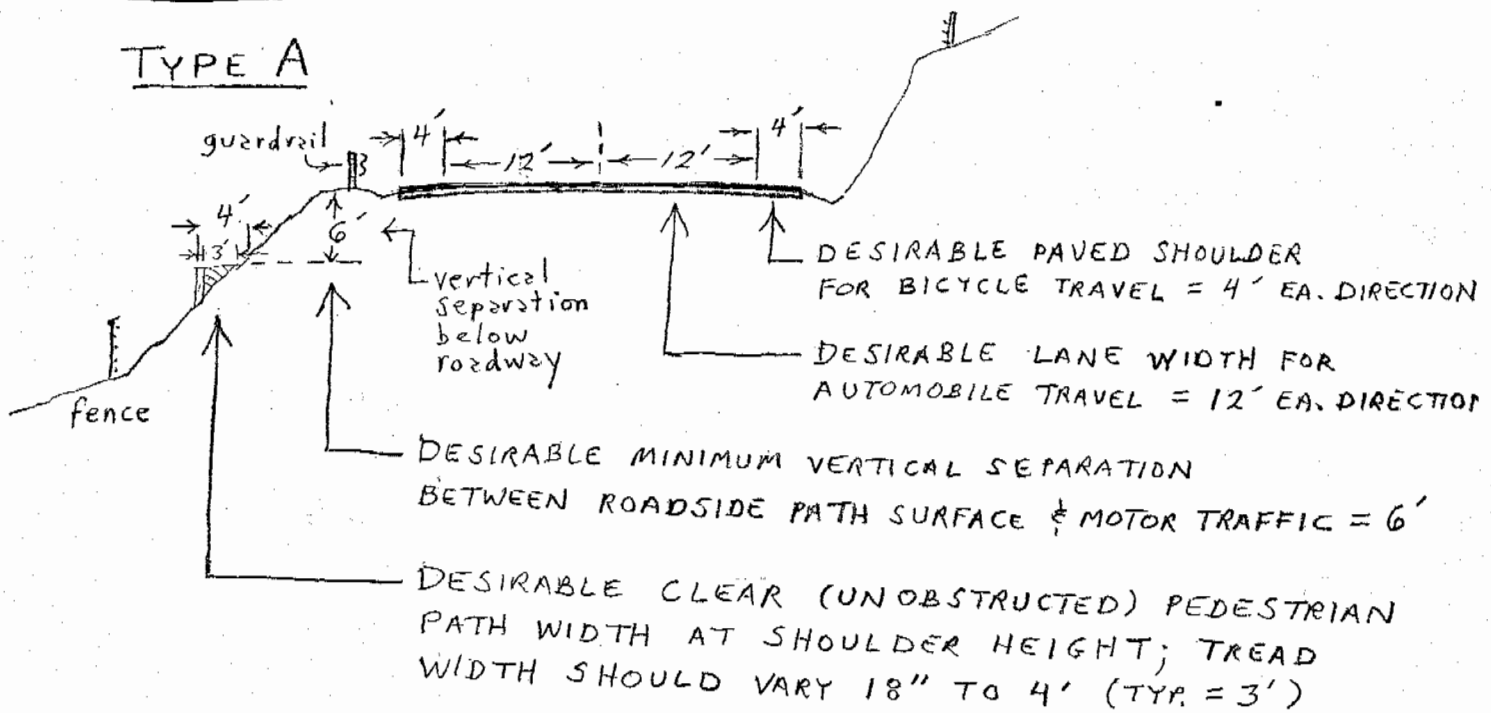 TYPE A
guardrail
4'
12'
12'
4'
4'
3'
6'
vertical
separation
below
roadway
fence
DESIRABLE PAVED SHOULDER
FOR BICYCLE TRAVEL = 4' EA. DIRECTION
DESIRABLE LANE WIDTH FOR
AUTOMOBILE TRAVEL = 12' EA. DIRECTION
DESIRABLE MINIMUM VERTICAL SEPARATION
BETWEEN ROADSIDE PATH SURFACE & MOTOR TRAFFIC = 6'
DESIRABLE CLEAR (UNOBSTRUCTED) PEDESTRIAN
PATH WIDTH AT SHOULDER HEIGHT; TREAD
WIDTH SHOULD VARY 18" TO 4' (TYP. = 3')